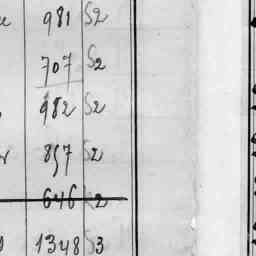 981 S2
707 S2
982 S2
857 S2
646 S2
1348 S3